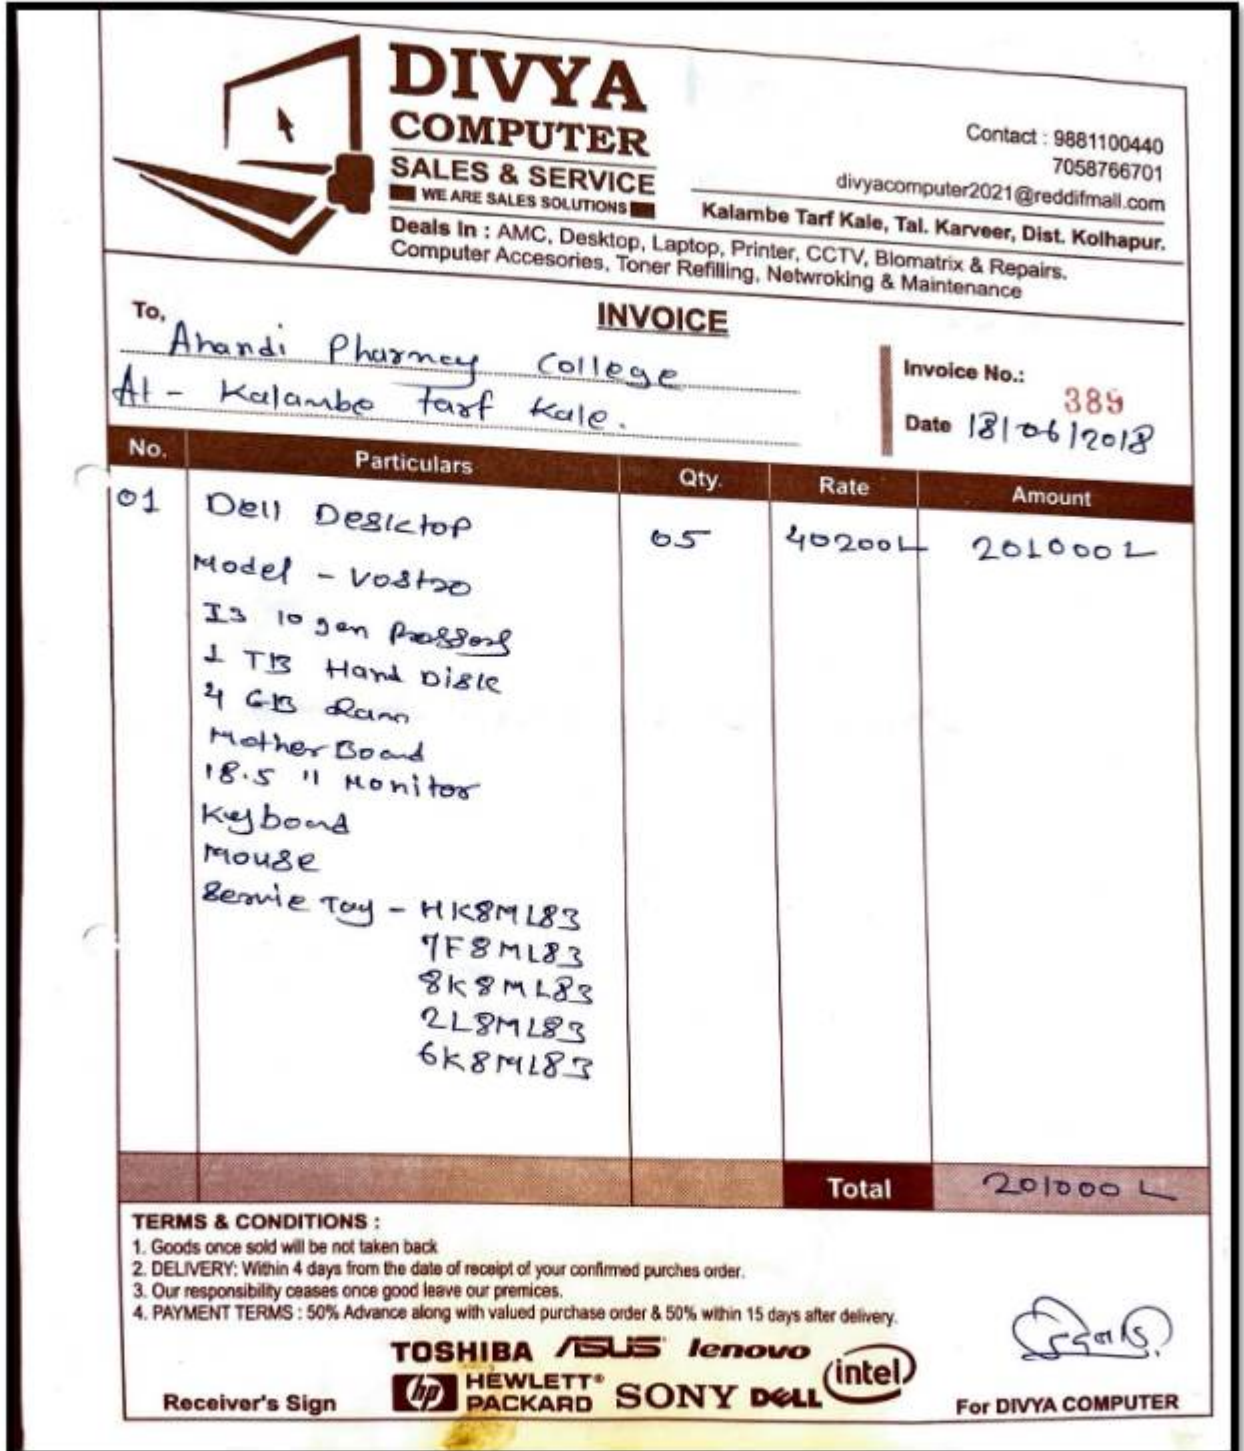 DIVYA
COMPUTER
SALES & SERVICE
WE ARE SALES SOLUTIONS
Contact : 9881100440
7058766701
divyacomputer2021@reddifmail.com
Kalambe Tarf Kale, Tal. Karveer, Dist. Kolhapur.
Deals In : AMC, Desktop, Laptop, Printer, CCTV, Biomatrix & Repairs.
Computer Accesories, Toner Refilling, Netwroking & Maintenance
To,
INVOICE
Anandi Pharmcy College
At - Kalambe tarf Kale.
Invoice No.: 389
Date 18/06/2018
No. Particulars Qty. Rate Amount
01 Dell Desktop 05 40200/- 201000/-
Model - Vostro
I3 10 gen
1 TB Hard Disk
4 GB Ram
Mother Board
18.5 " Monitor
Keyboard
Mouse
Servie Tag - HK8ML83
7F8ML83
8K8ML83
2L8ML83
6K8ML83
Total 201000/-
TERMS & CONDITIONS :
1. Goods once sold will be not taken back
2. DELIVERY: Within 4 days from the date of receipt of your confirmed purches order.
3. Our responsibility ceases once good leave our premices.
4. PAYMENT TERMS : 50% Advance along with valued purchase order & 50% within 15 days after delivery.
TOSHIBA ASUS lenovo
hp HEWLETT PACKARD SONY DELL intel
Receiver's Sign
For DIVYA COMPUTER